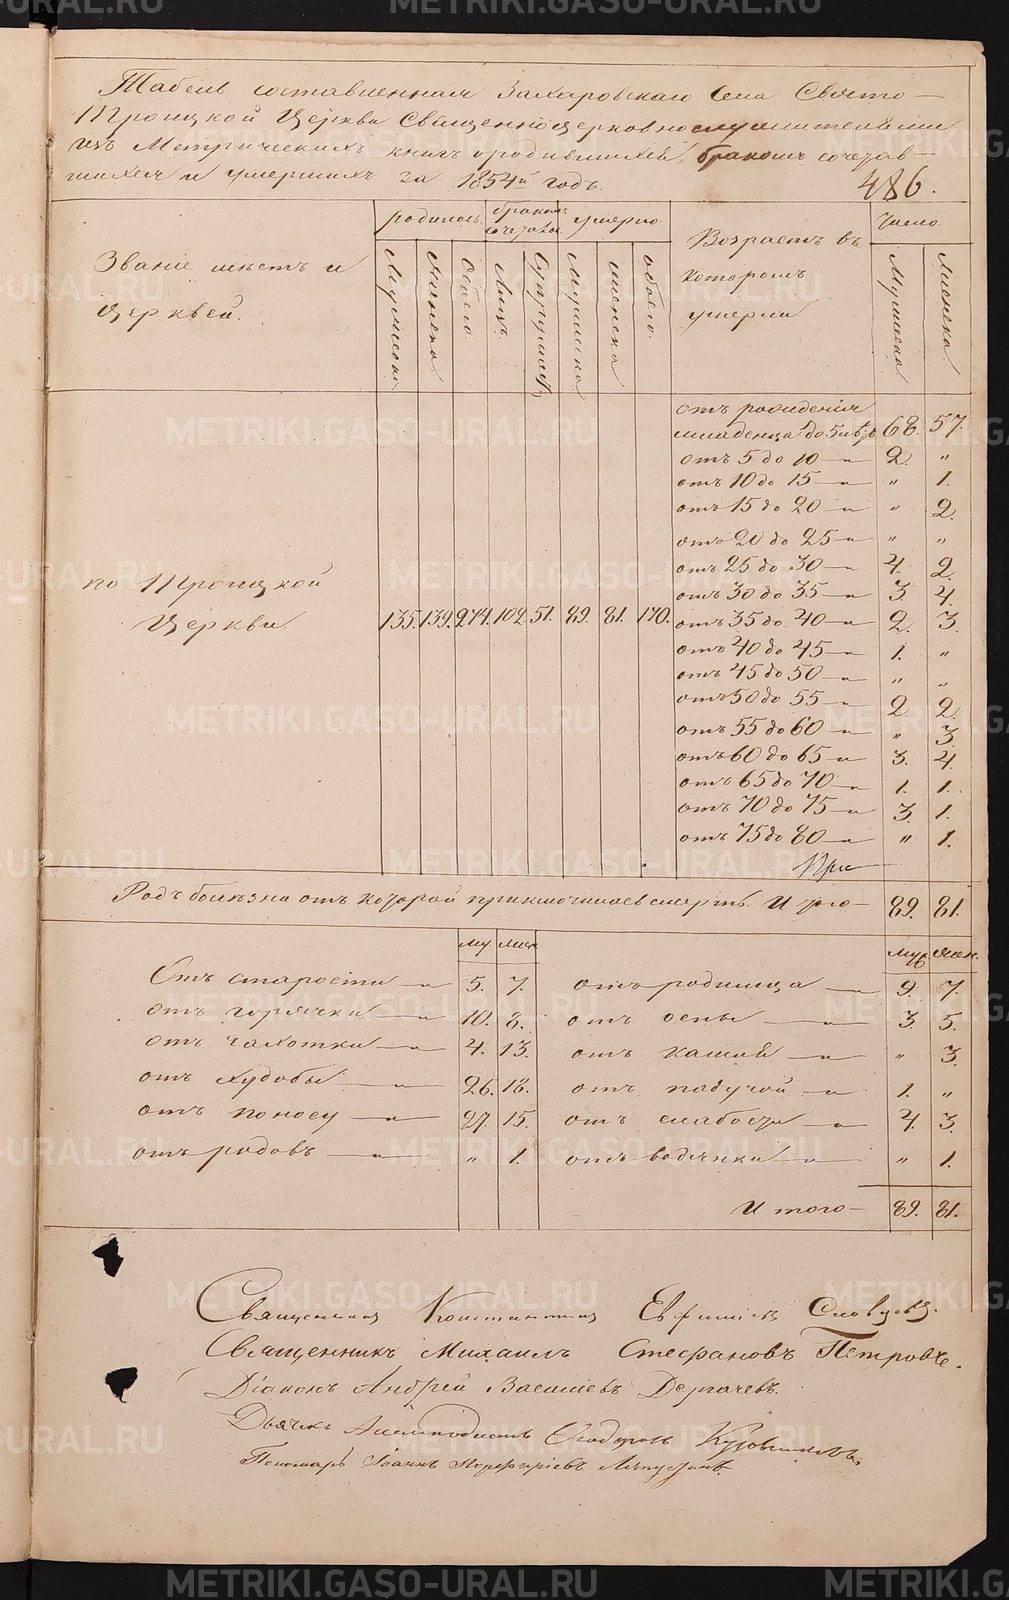 Табель составленная Захаровскаго Села Свято-
Троицкой Церкви Священноцерковнослужителями
изъ Метрическихъ книгъ о родившихся, бракомъ сочетав-
шихся и умершихъ за 1854й годъ.
486.
Званіе мѣстъ и
Церквей.
родилось. бракомъ сочеталос. умерло.
Мужеска Женска Обоего. Лицъ. Супружеств Мужеска женска обоего.
Возрастъ въ
которомъ
умерли
Число.
Мужеска Женска
отъ рожденія
младенца до 5 лѣтъ 68. 57.
отъ 5 до 10 — „ 2. „
отъ 10 до 15 — „ „ 1.
отъ 15 до 20 — „ „ 2.
отъ 20 до 25 — „ „ „
отъ 25 до 30 — „ 4. 2.
отъ 30 до 35 — „ 3. 4.
по Троицкой
Церкви 135. 139. 274. 102. 51. 89. 81. 170. отъ 35 до 40 — „ 2. 3.
отъ 40 до 45 — „ 1. „
отъ 45 до 50 — „ „ „
отъ 50 до 55 — „ 2. 2.
отъ 55 до 60 — „ „ 3.
отъ 60 до 65 — „ 3. 4.
отъ 65 до 70 — „ 1. 1.
отъ 70 до 75 — „ 3. 1.
отъ 75 до 80 — „ „ 1.
Родъ болѣзни отъ которой приключилась смерть. Итого — 89. 81.
му. жен му. жен.
Отъ старости — „ 5. 7. отъ родимца — „ 9. 7.
отъ горячки — „ 10. 8. отъ оспы — „ 3. 5.
отъ чахотки — „ 4. 13. отъ кашля — „ „ 3.
отъ худобы — „ 26. 18. отъ падучой — „ 1. „
отъ поносу — „ 27. 15. отъ слабости — „ 4. 3.
отъ родовъ — „ „ 1. отъ водянки — „ „ 1.
Итого — 89. 81.
Священникъ Константинъ Евфиміевъ Словцовъ.
Священникъ Михаилъ Стефановъ Петровъ.
Діаконъ Андрей Васильевъ Дергачевъ.
Дьячекъ
Пономарь Іоаннъ Порфиріевъ
METRIKI.GASO-URAL.RU